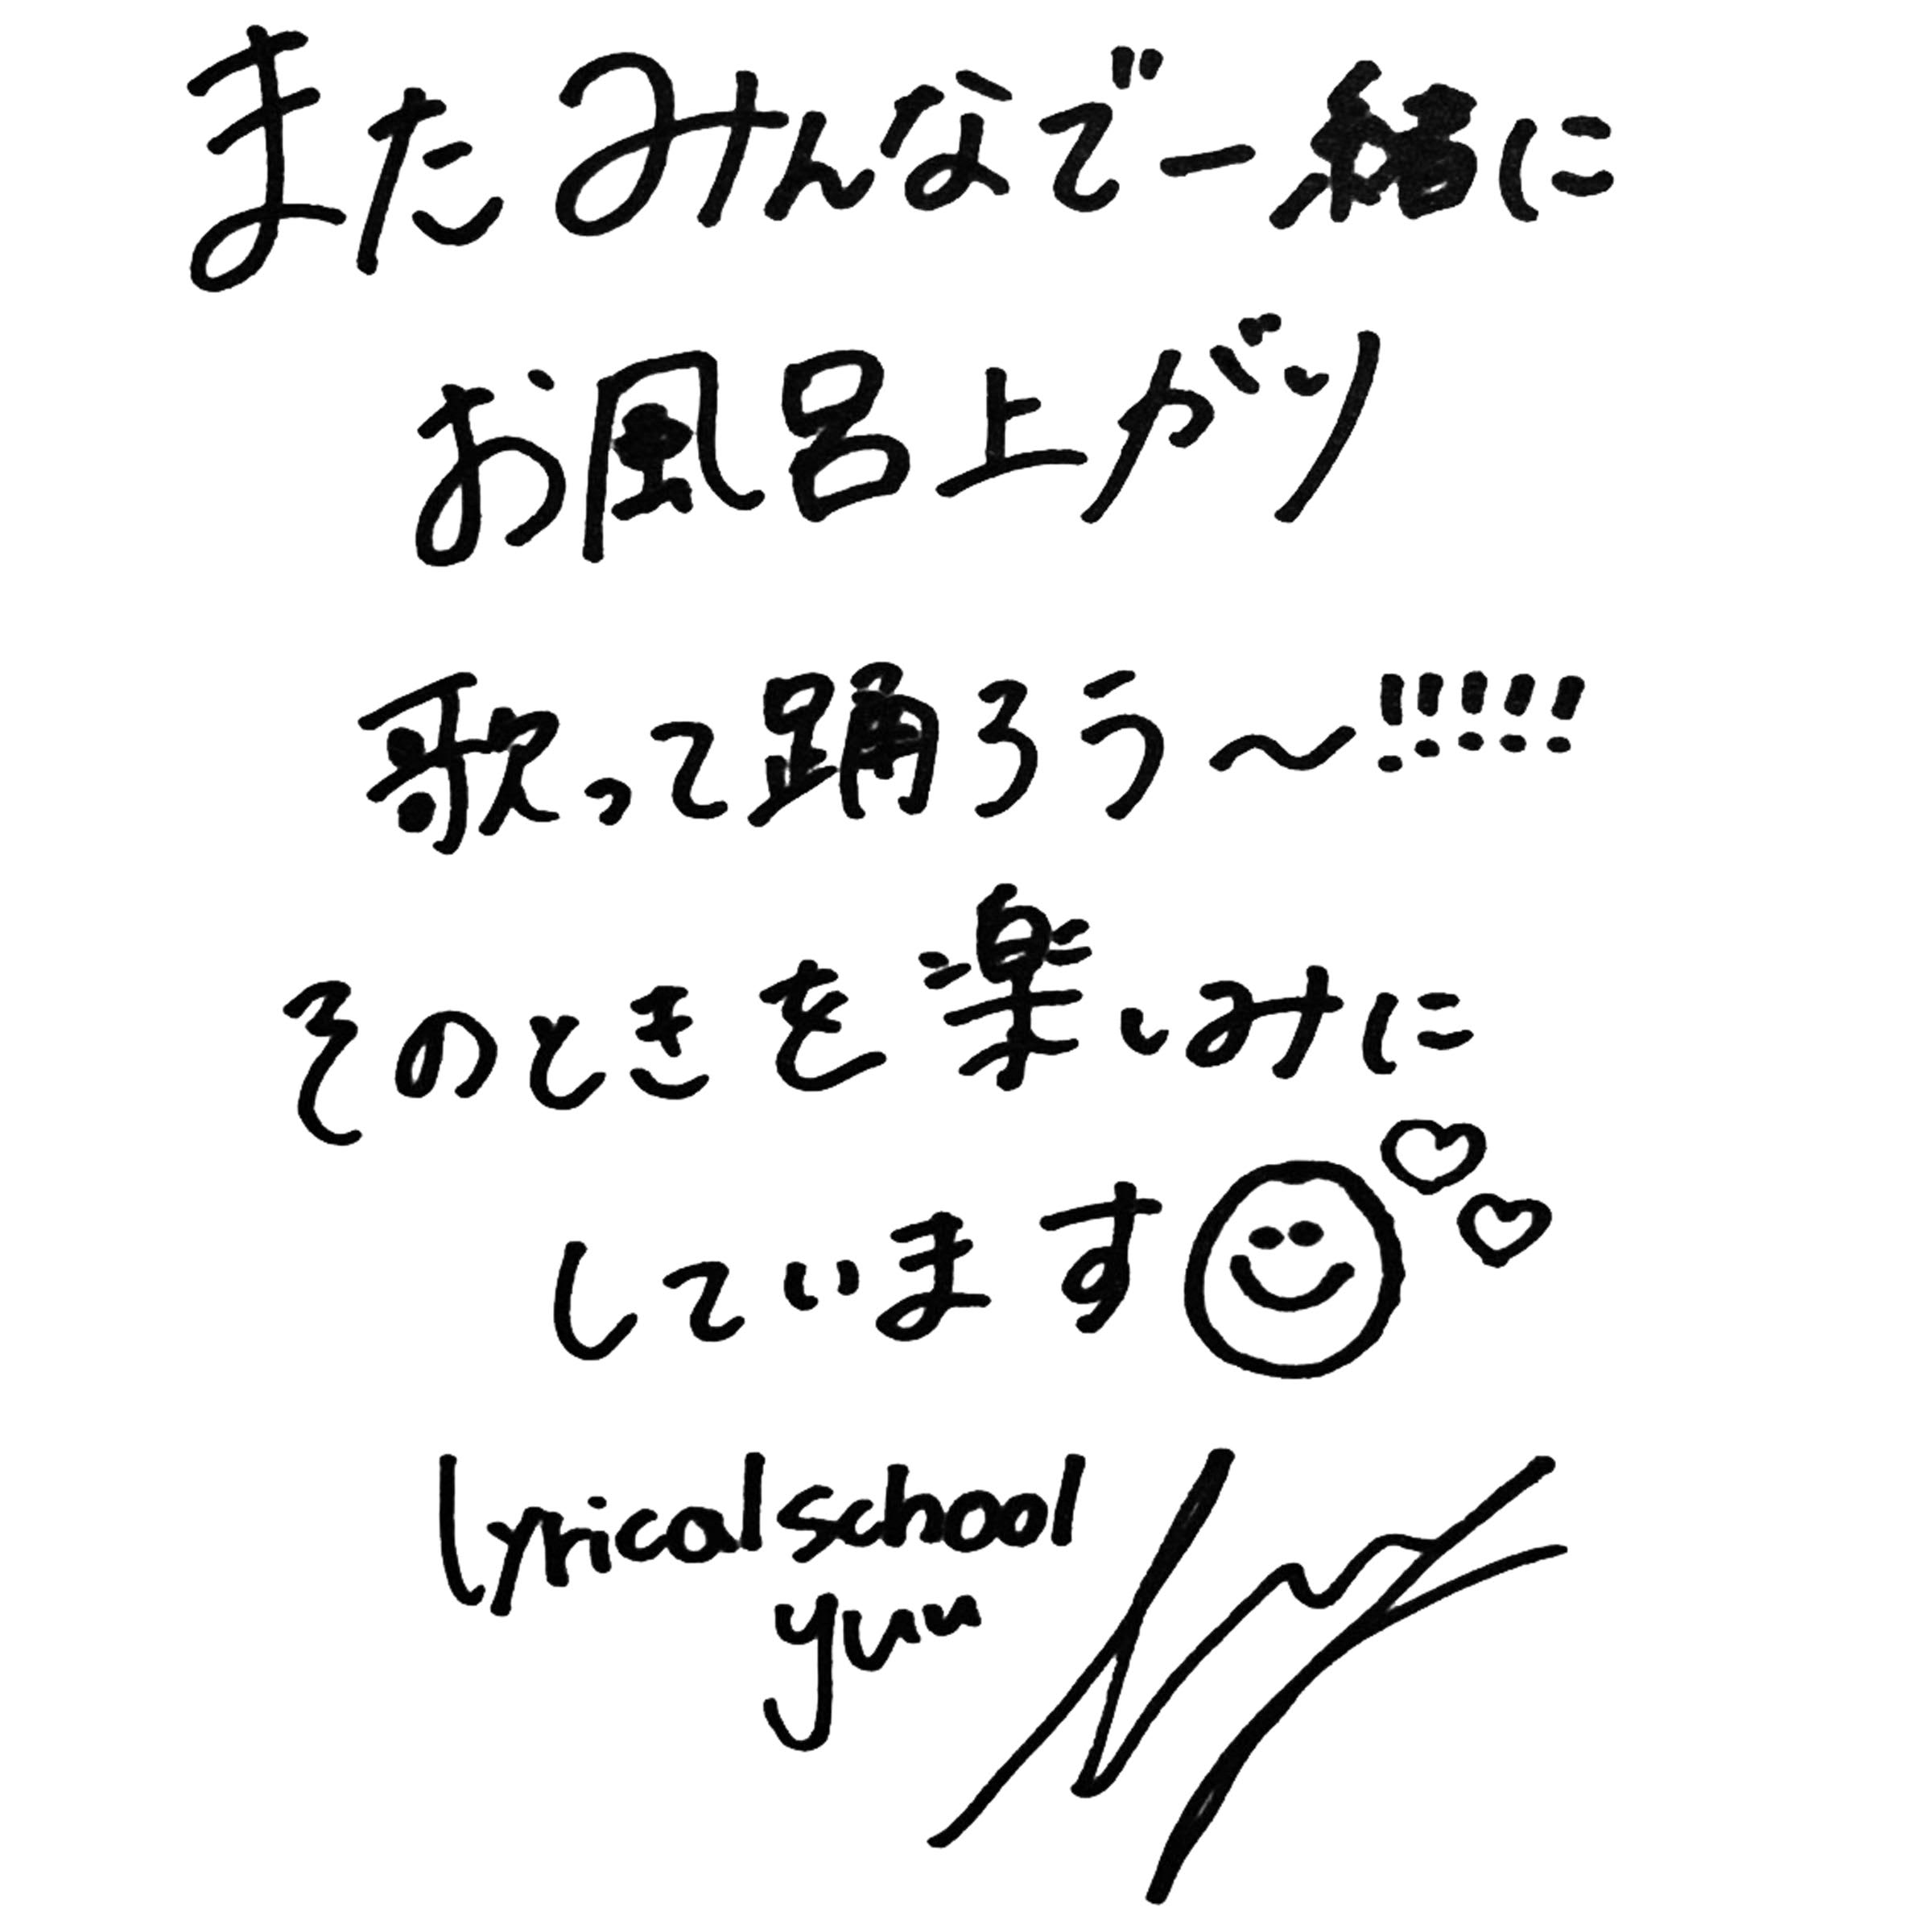 また みんなで一緒に
お風呂上がり
歌って踊ろう〜!!!!!
そのときを楽しみに
しています
lyrical school
yuu